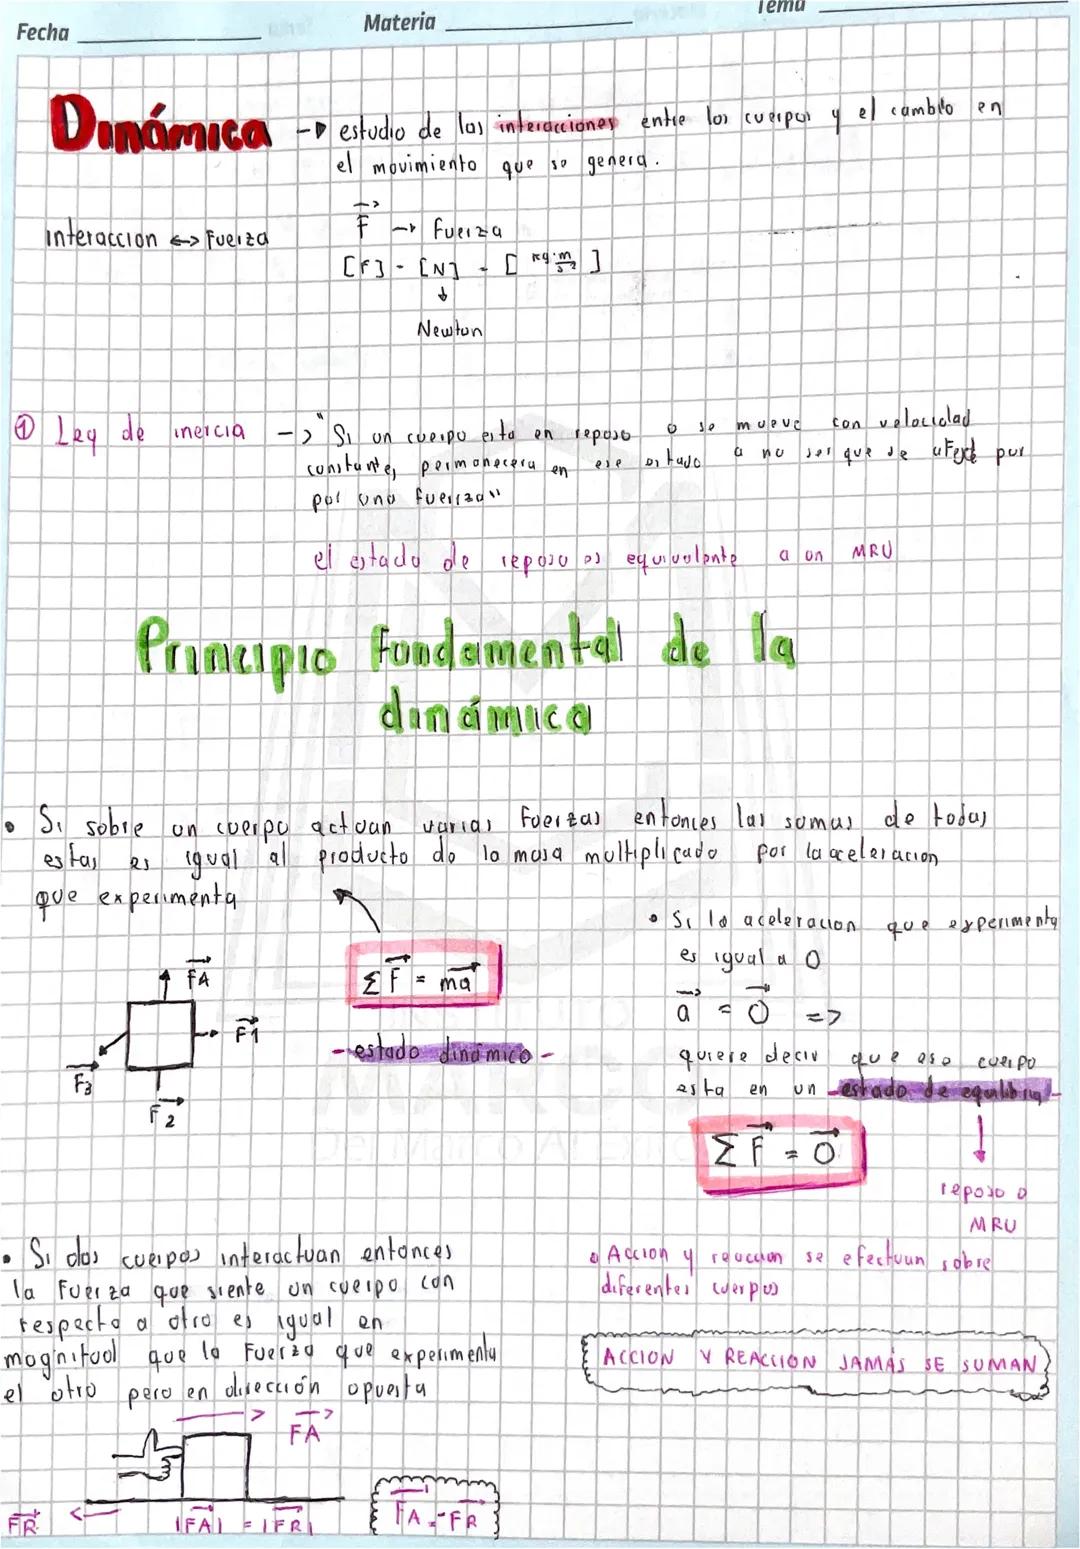 Fecha
Materia
Tema
Dinámica -> estudio de las interacciones entre los cuerpos y el cambio en
el movimiento que se genera.
interaccion <-> Fuerza
F -> Fuerza
[F] - [N] - [kg·m/s²]
↓
Newton
① Ley de inercia -> "Si un cuerpo esta en reposo o se mueve con velocidad
constante, permanecera en ese estado a no ser que se afecte por
por una fuerza"
el estado de reposo es equivalente a un MRU
Principio Fundamental de la
dinámica
• Si sobre un cuerpo actuan varias Fuerzas entonces las sumas de todas
estas es igual al producto de la masa multiplicado por la aceleracion
que experimenta
ΣF = ma
- estado dinámico -
FA
F1
F3
F2
• Si la aceleracion que experimenta
es igual a 0
a = 0 =>
quiere decir que ese cuerpo
esta en un - estado de equilibrio -
ΣF = 0
reposo o
MRU
• Si dos cuerpos interactuan entonces
la Fuerza que siente un cuerpo con
respecto a otro es igual en
magnitud que la Fuerza que experimenta
el otro pero en dirección opuesta
• Accion y reaccion se efectuan sobre
diferentes cuerpos
ACCION Y REACCION JAMÁS SE SUMAN
FA
FR
|FA| = |FR|
FA = -FR